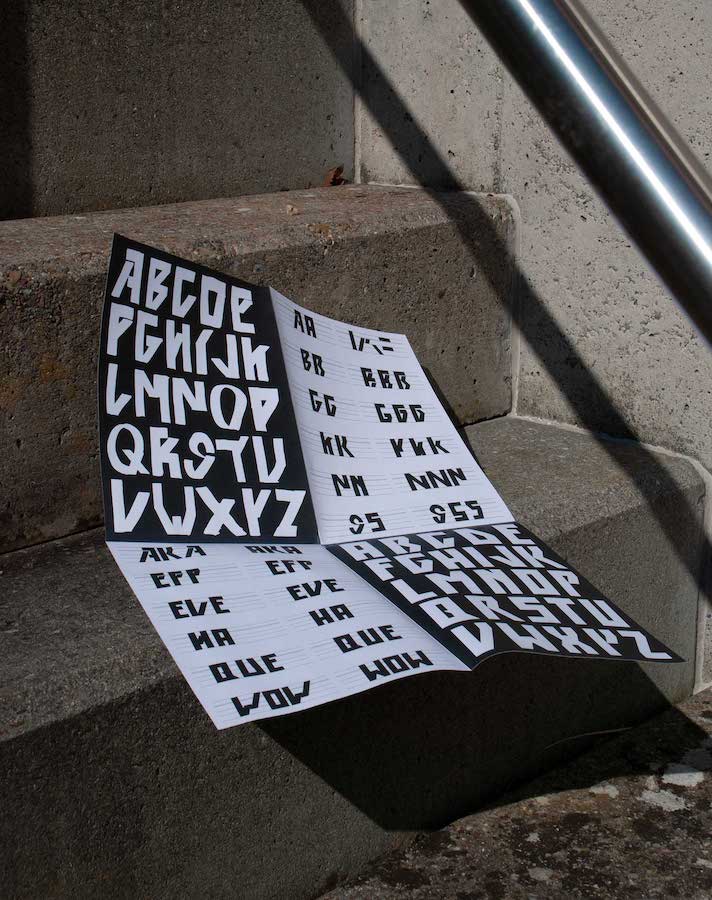 ABCDE
FGHIJK
LMNOP
QRSTU
VWXYZ
AA
BB BBB
GG GGG
KK KKK
NN NNN
SS SSS
AKA AKA
EFF EFF
EVE EVE
HA HA
QUE QUE
WOW WOW
ABCDE
FGHIJK
LMNOP
QRSTU
VWXYZ